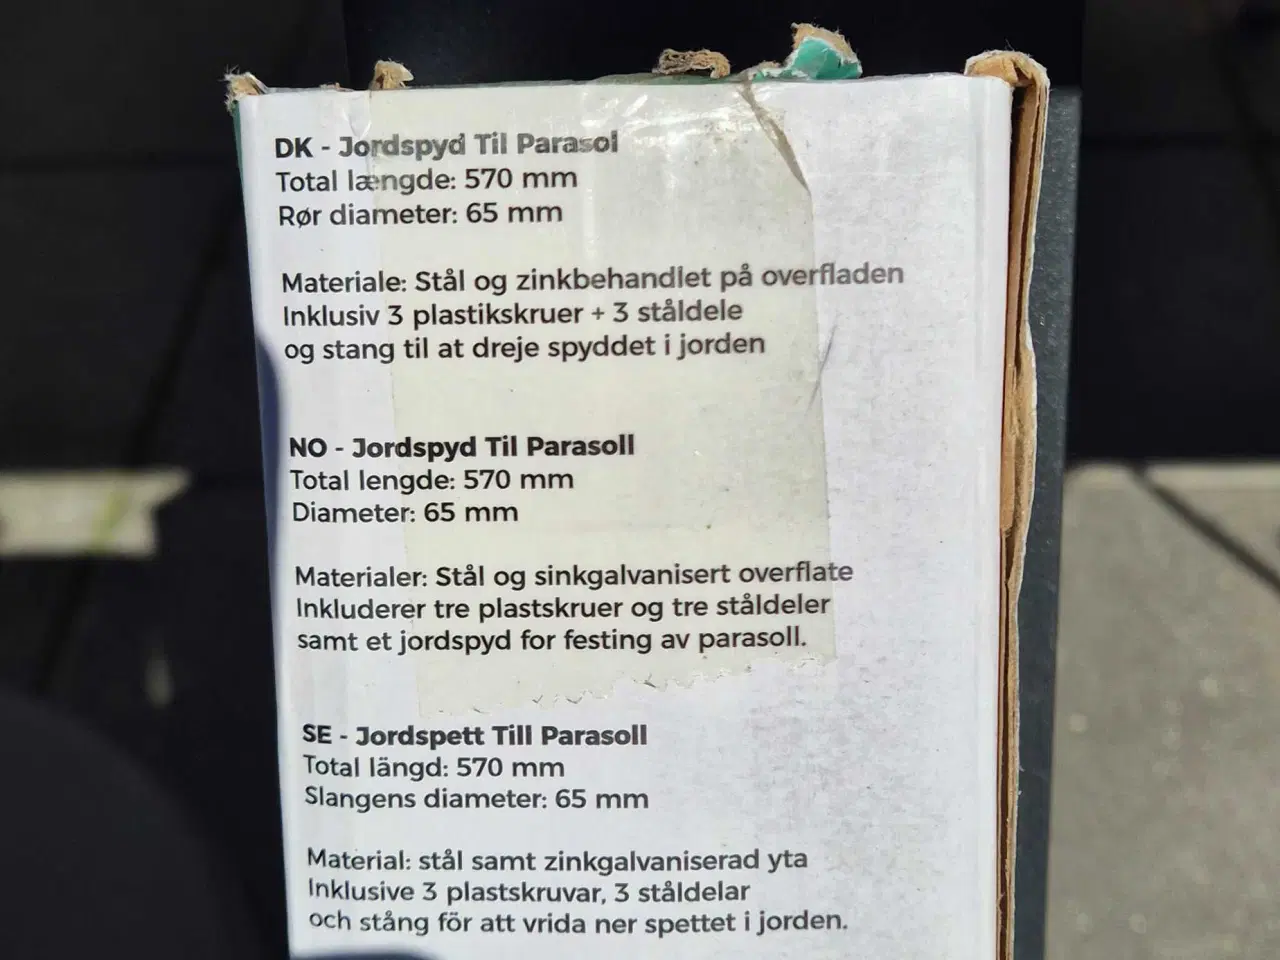 DK - Jordspyd Til Parasol
Total længde: 570 mm
Rør diameter: 65 mm
Materiale: Stål og zinkbehandlet på overfladen
Inklusiv 3 plastikskruer + 3 ståldele
og stang til at dreje spyddet i jorden
NO - Jordspyd Til Parasoll
Total lengde: 570 mm
Diameter: 65 mm
Materialer: Stål og sinkgalvanisert overflate
Inkluderer tre plastskruer og tre ståldeler
samt et jordspyd for festing av parasoll.
SE - Jordspett Till Parasoll
Total längd: 570 mm
Slangens diameter: 65 mm
Material: stål samt zinkgalvaniserad yta
Inklusive 3 plastskruvar, 3 ståldelar
och stång för att vrida ner spettet i jorden.